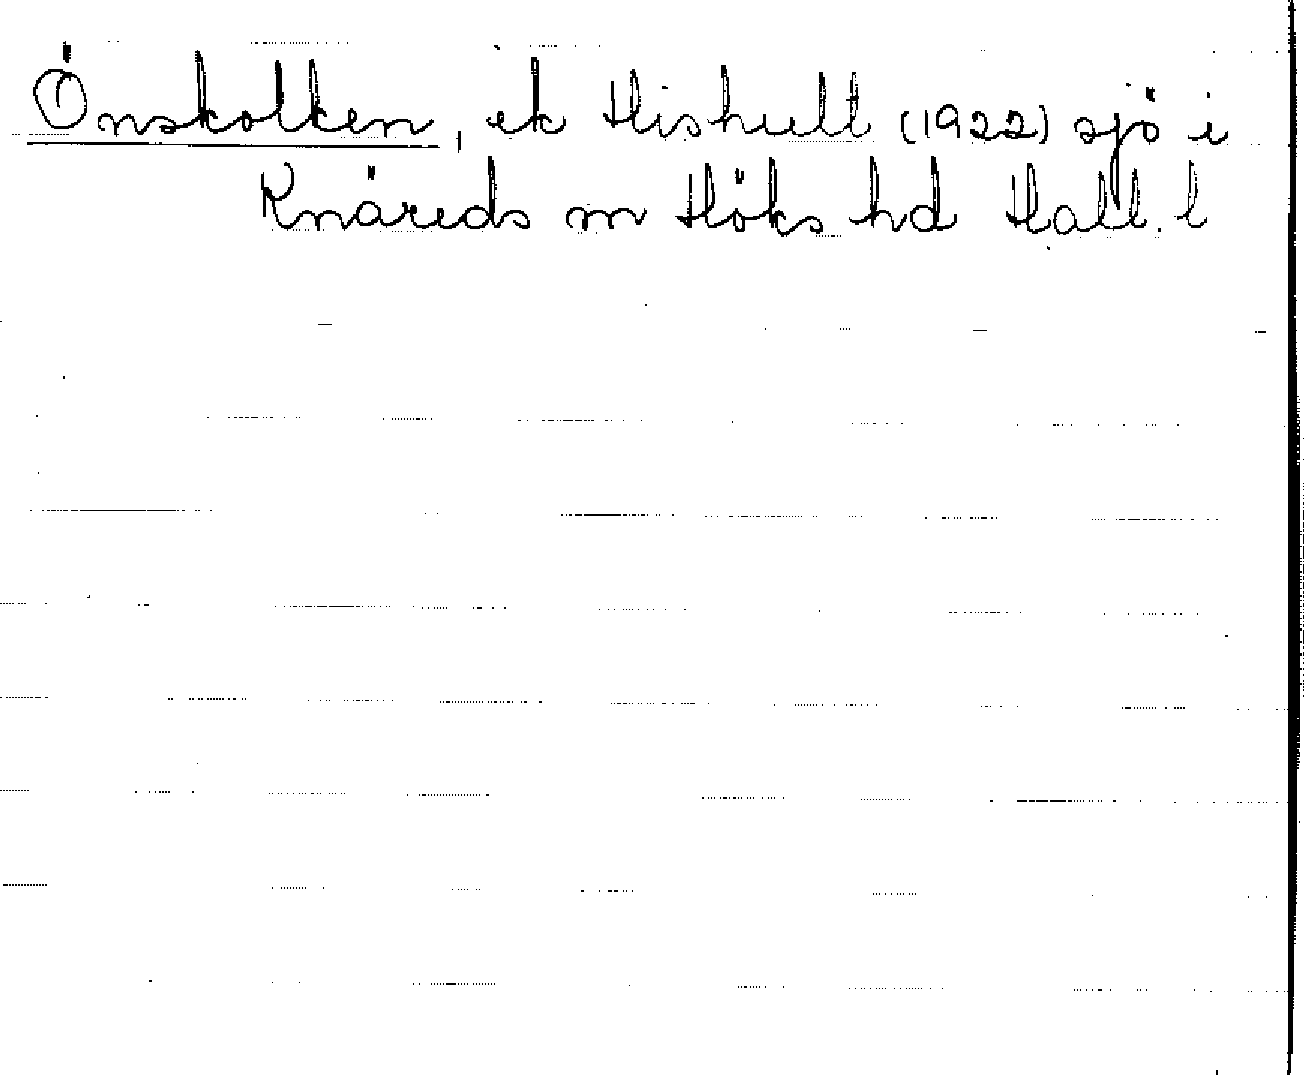 Önskolken, ek Hishult (1922) sjö i
Knäreds sn Höks hd Hall. l